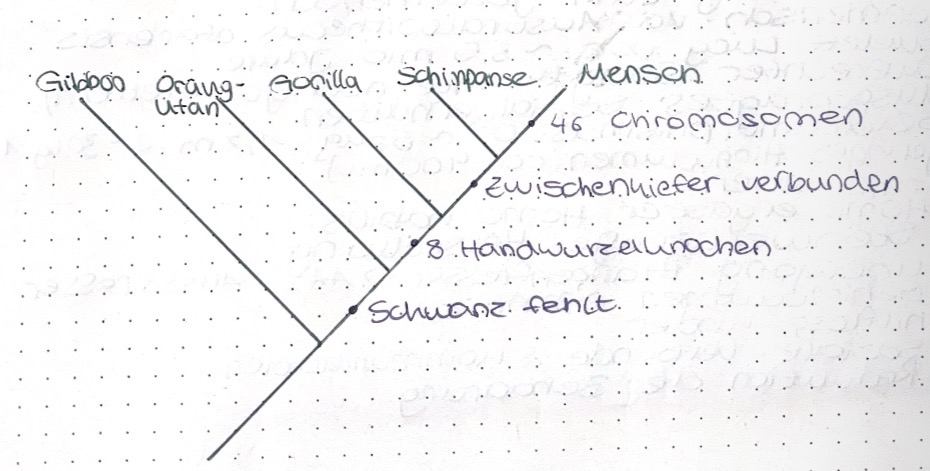 Gibbon Orang- Gorilla Schimpanse Mensch
Utan
46 Chromosomen
Zwischenkiefer verbunden
8 Handwurzelknochen
Schwanz fehlt